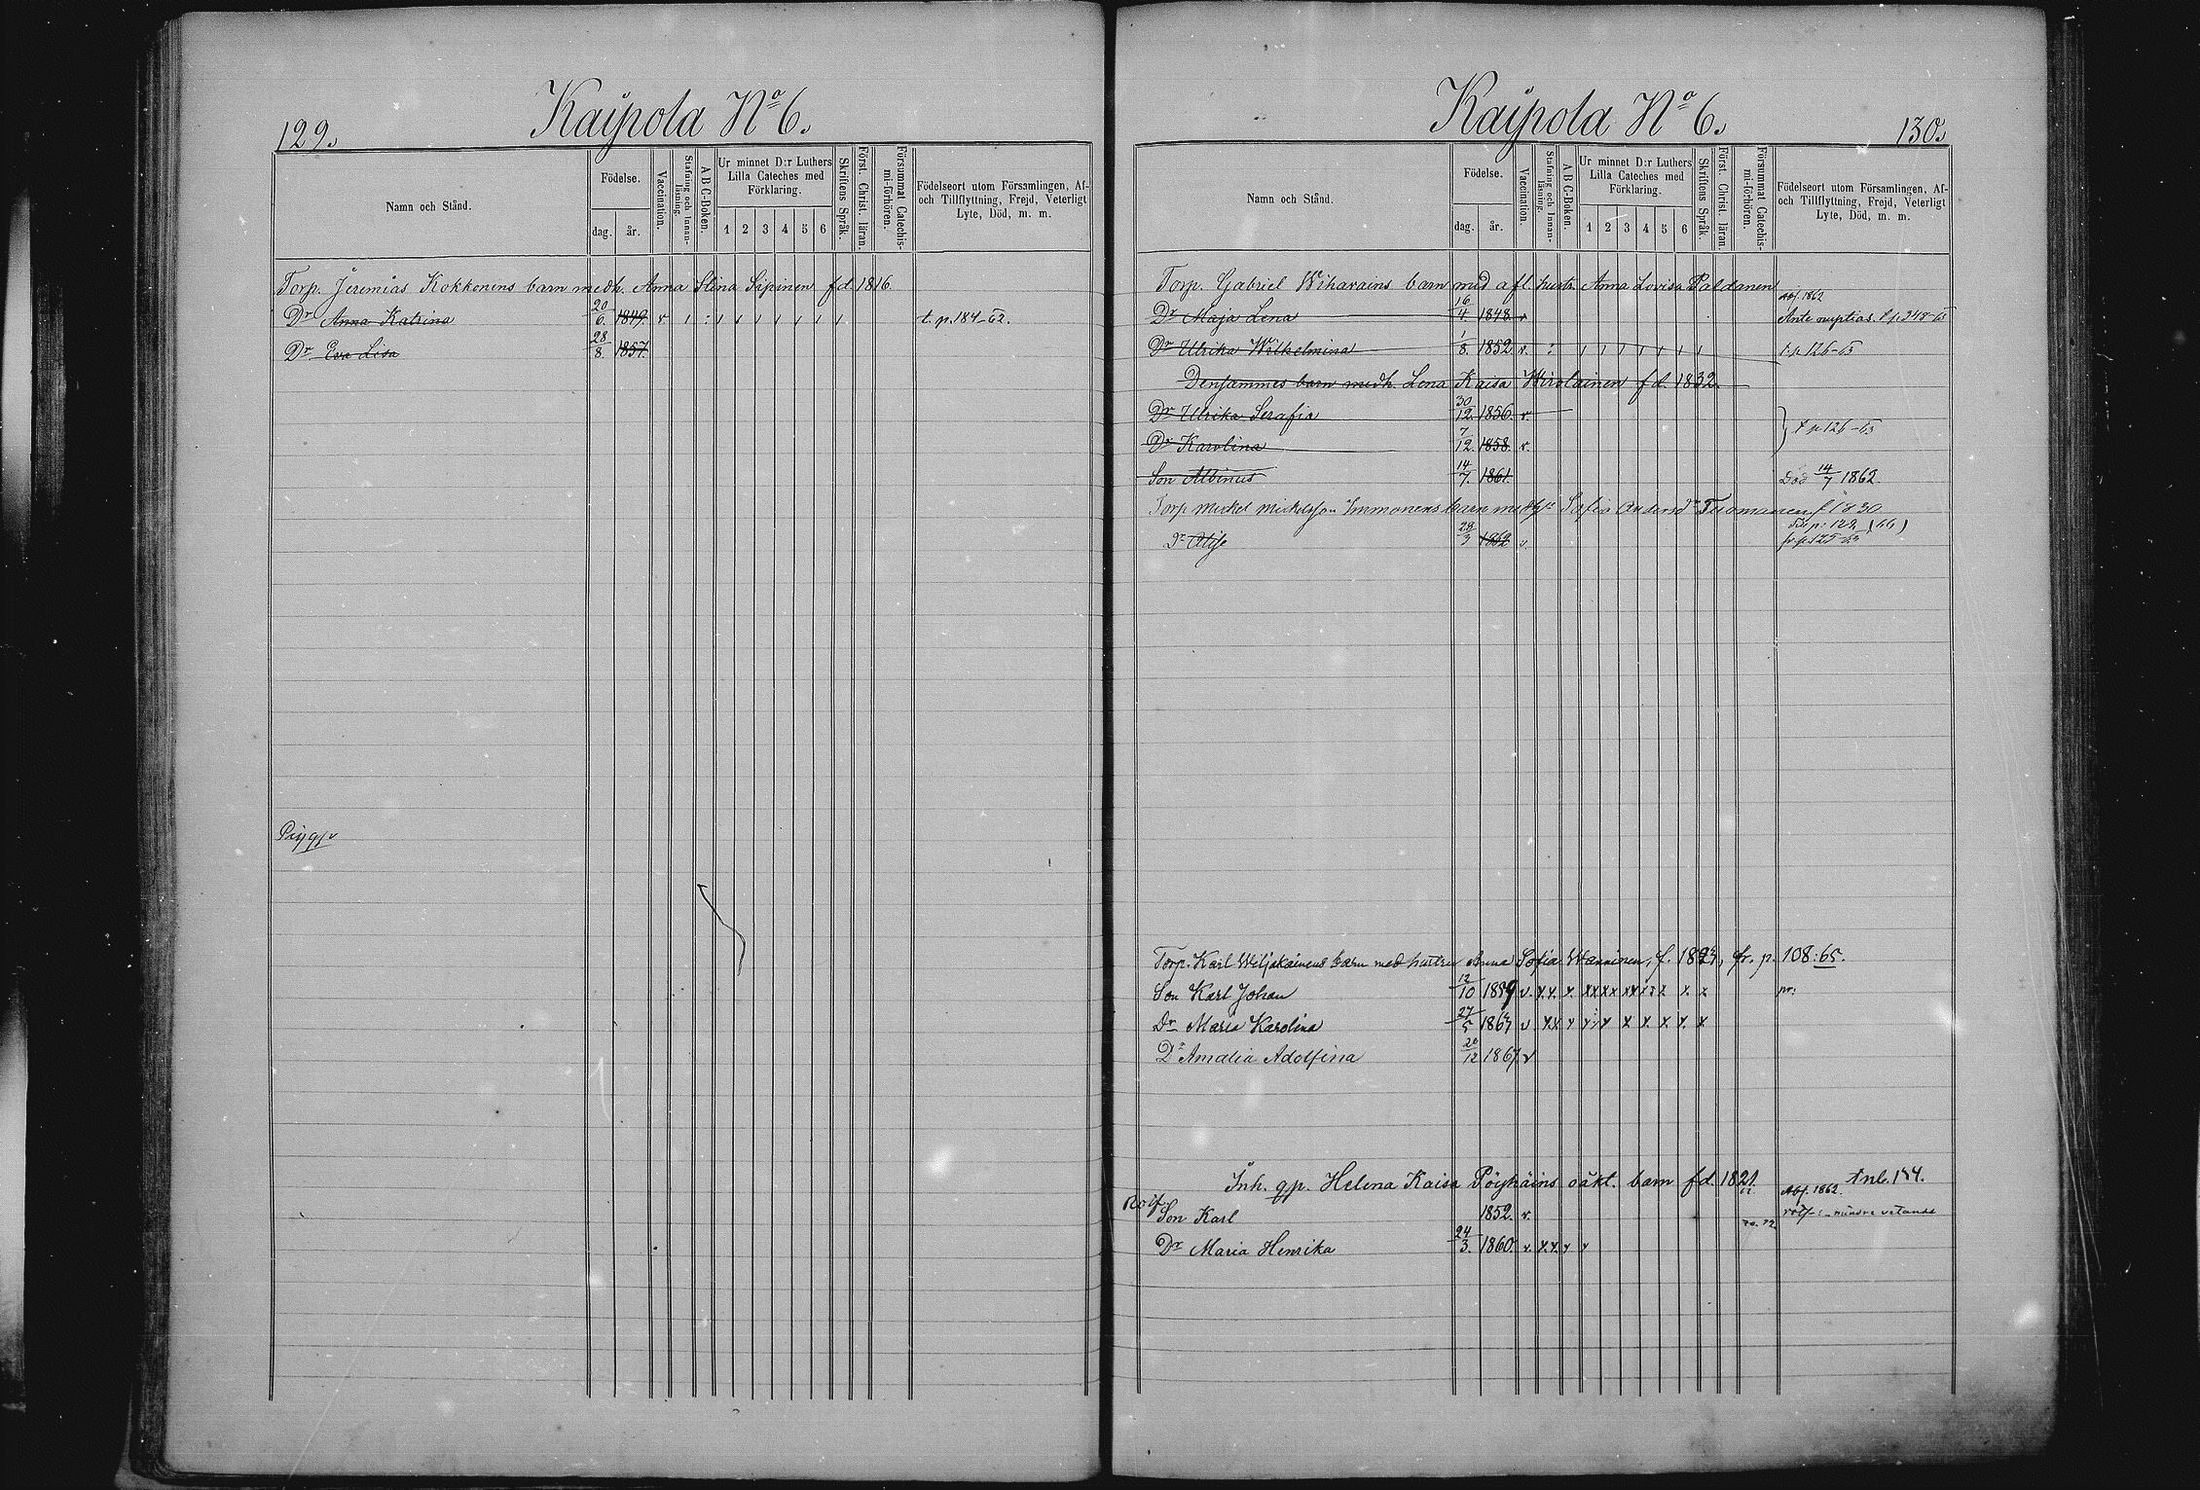 129.
Kaipola No 6.
Namn och Stånd.
Födelse.
dag.
år.
Vaccination.
Stafning och Innanläsning.
A B C-Boken.
Ur minnet D:r Luthers Lilla Cateches med Förklaring.
1 2 3 4 5 6
Skriftens Språk.
Först. Christ. läran.
Försummat Catechismi-förhören.
Födelseort utom Församlingen, Af- och Tillflyttning, Frejd, Veterligt Lyte, Död, m. m.
Torp. Jeremias Kokkonens barn medh. Anna Stina Sipinen fd. 1816
Dr Anna Katrina 20/6. 1849. v t. p. 184-62.
Dr Eva Lisa 28/8. 1857.
Kaipola No 6.
130.
Namn och Stånd.
Födelse.
dag.
år.
Vaccination.
Stafning och Innanläsning.
A B C-Boken.
Ur minnet D:r Luthers Lilla Cateches med Förklaring.
1 2 3 4 5 6
Skriftens Språk.
Först. Christ. läran.
Försummat Catechismi-förhören.
Födelseort utom Församlingen, Af- och Tillflyttning, Frejd, Veterligt Lyte, Död, m. m.
Torp. Gabriel Wiharains barn med afl. hustr. Anna Lovisa Paldanen
Adf. 1862
Dr Maja Lena 16/4. 1848. v Ante nuptias. t. p. 348-65
Dr Ulrika Wilhelmina 1/8. 1852 v. t. p. 126-65
Densammes barn medh. Lena Kaisa Wirolainen fd. 1832.
Dr Ulrika Serafia 30/12. 1856. v.
Dr Karolina 7/12. 1858. v. t. p. 126-65
Son Albinus 14/7. 1861. Död 14/7 1862.
Torp Mickel Mickelsson Immonens barn med Sofia Tuomanen f. 1830
28/3 1862 v. fr. p. 125-63
Torp. Karl Weljakainens barn med hustru Anna Sofia Wanninen, f. 1824, fr. p. 108:65.
Son Karl Johan 12/10 1859 v. x.x. x. xx xx xx x x x x x pr:
Dr Maria Karolina 27/5 1864 v x.x x
Dr Amalia Adolfina 20/12 1867 v
Inh. qp. Helena Kaisa Pöyhäins oäkt. barn fd. 1821.
Adf. 1862.
Son Karl 1852. v. mindre vetande
Dr Maria Henrika 24/3. 1860. v x.x. v v